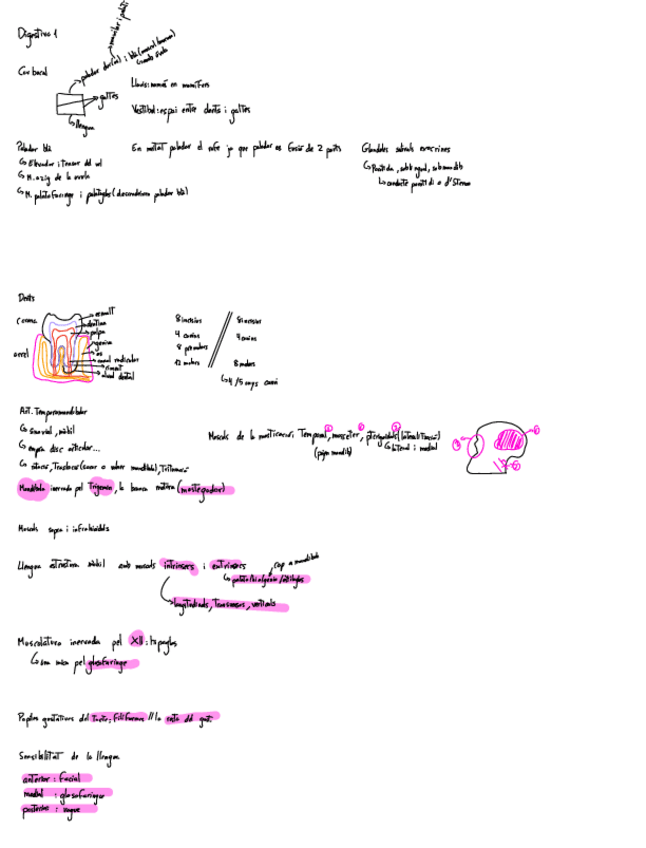 Digestivo 1
Cav bucal
paladar dur(os) i bla (muscul
galtes
llengua
Llavis: només en mamífers
Vestíbul: espai entre dents i galtes
Paladar bla
Elevador i tensor del vel
M. azig de la uvula
M. palatofaringe i palatoglos (descendeixen paladar bla)
En meitat paladar el rafe ja que paladar es fusió de 2 parts
Glandules salivals exocrines
Parotida, sublingual, submandib
conducte parotidi o d'Stenon
Dents
Corona
arrel
esmalt
dentina
pulpa
genives
os
canal radicular
ciment
8 incisius
4 canins
8 premolars
12 molars
8 incisius
4 canins
8 molars
Art. Temporomandibular
Sinovial, mòbil
disc articular...
Mandíbula inervada pel Trigemin, la branca motora (mastegadora)
Muscls de la masticació: Temporal, masseter, pterigoideos (lateralització)
(puja mandib)
lateral i medial
Muscls supra i infrahioidds
Llengua estructura mòbil amb muscls intrinsecs i extrinsecs
cap a mandibula
longitudinals, Transversos, verticals
Musculatura inervada pel XII: hipoglos
una mica pel glosofaringe
Papiles gustatives del tacte; filiformes // la resta del gust.
Sensibilitat de la llengua
anterior: facial
medial : glosofaringe
posterior : vague